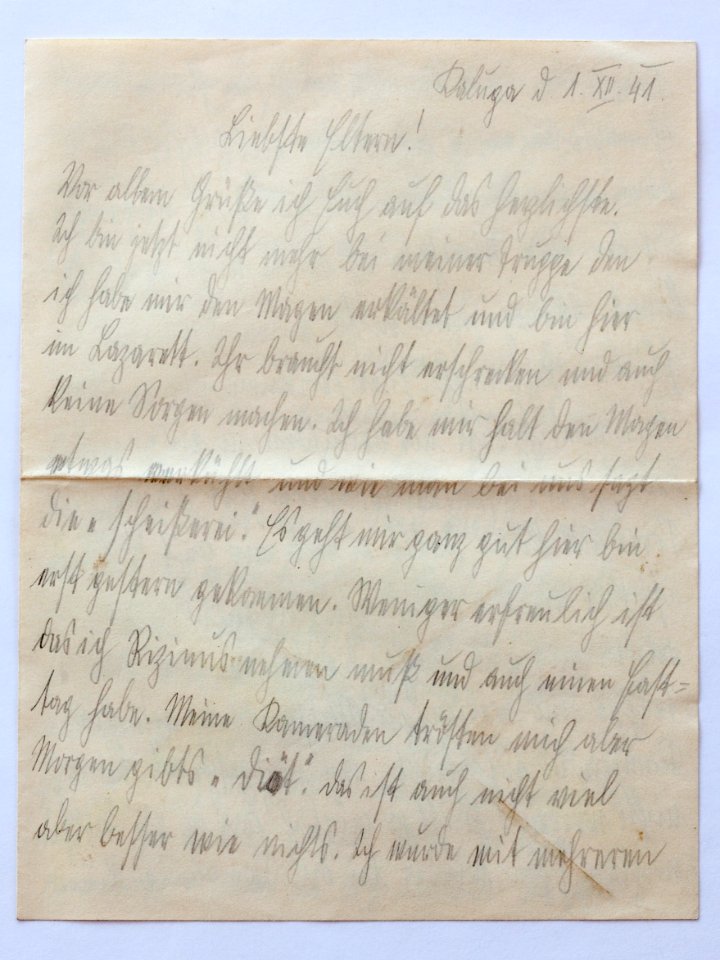 Kaluga d 1. XII. 41.
Liebste Eltern!
Vor allem Grüße ich Euch auf das herzlichste.
Ich bin jetzt nicht mehr bei meiner Truppe den
ich habe mir den Magen erkältet und bin hier
im Lazarett. Ihr braucht nicht erschrecken und auch
keine Sorgen machen. Ich habe mir halt den Magen
etwas verkühlt und wie man bei uns sagt
die „Scheißerei." Es geht mir ganz gut hier bin
erst gestern gekommen. Weniger erfreulich ist
das ich Rizinus nehmen muß und auch einen Fast=
tag habe. Meine Kameraden trösten mich aber
Morgen gibts „Diät." Das ist auch nicht viel
aber besser wie nichts. Ich wurde mit mehreren